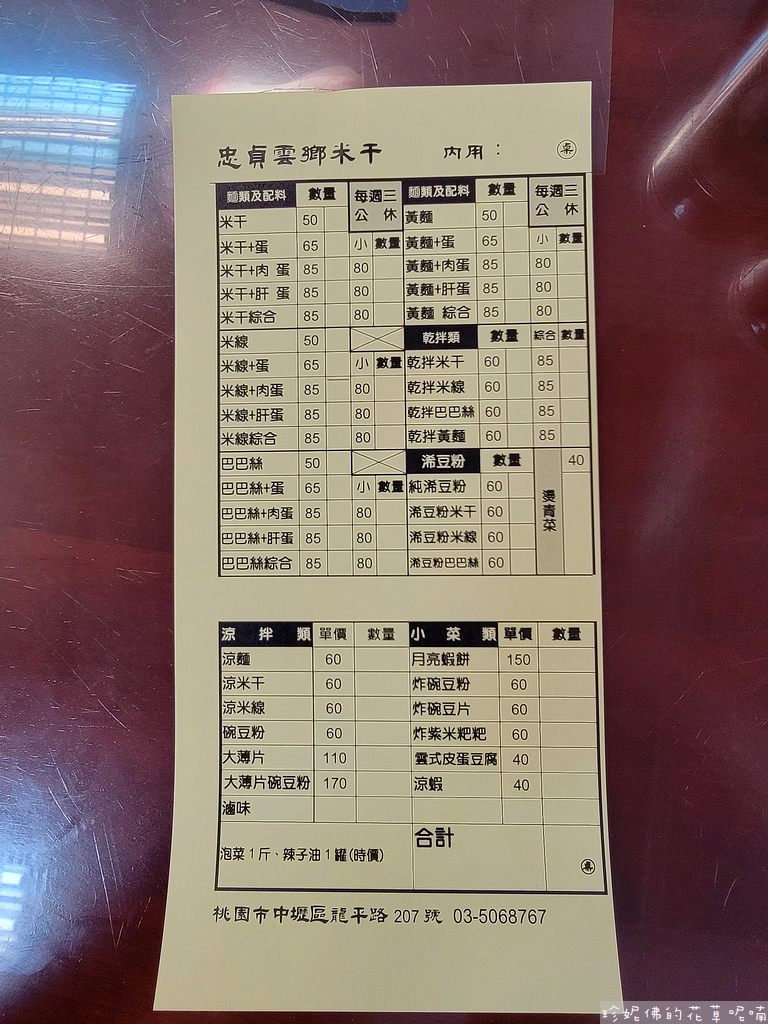 忠貞雲鄉米干 內用： 桌
麵類及配料 數量 每週三公休 麵類及配料 數量 每週三公休
米干 50 黃麵 50
米干+蛋 65 小 數量 黃麵+蛋 65 小 數量
米干+肉 蛋 85 80 黃麵+肉蛋 85 80
米干+肝 蛋 85 80 黃麵+肝蛋 85 80
米干綜合 85 80 黃麵 綜合 85 80
米線 50 乾拌類 數量 綜合 數量
米線+蛋 65 小 數量 乾拌米干 60 85
米線+肉蛋 85 80 乾拌米線 60 85
米線+肝蛋 85 80 乾拌巴巴絲 60 85
米線綜合 85 80 乾拌黃麵 60 85
巴巴絲 50 浠豆粉 數量 燙青菜 40
巴巴絲+蛋 65 小 數量 純浠豆粉 60
巴巴絲+肉蛋 85 80 浠豆粉米干 60
巴巴絲+肝蛋 85 80 浠豆粉米線 60
巴巴絲綜合 85 80 浠豆粉巴巴絲 60
涼拌類 單價 數量 小菜類 單價 數量
涼麵 60 月亮蝦餅 150
涼米干 60 炸碗豆粉 60
涼米線 60 炸碗豆片 60
碗豆粉 60 炸紫米粑粑 60
大薄片 110 雲式皮蛋豆腐 40
大薄片碗豆粉 170 涼蝦 40
滷味
泡菜1斤、辣子油1罐(時價) 合計 桌
桃園市中壢區龍平路 207 號 03-5068767
珍妮佛的花草呢喃